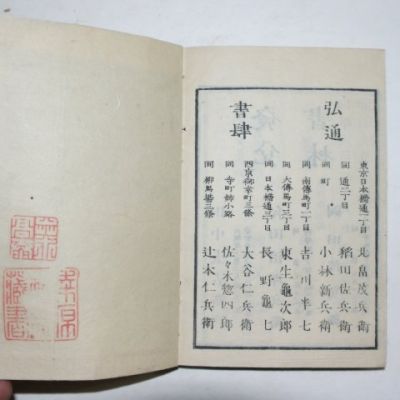 弘通
書肆
東京日本橋通一丁目 北畠茂兵衛
同 通二丁目 稲田佐兵衛
同 町 小林新兵衛
同 南傳馬町一丁目 吉川半七
同 大傳馬町二丁目 東生龜次郎
同 日本橋通三丁目 長野龜七
西京御幸町三條 大谷仁兵衛
同 寺町錦小路 佐々木惣四郎
同 柳馬場三條 辻本仁兵衛
藏書